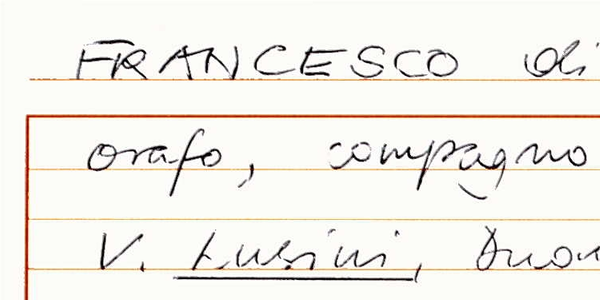 FRANCESCO di
orafo, compagno
V. Lusini, Duo